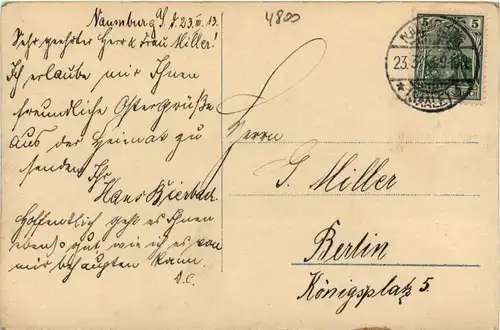 4800
Naumburg a/S. d. 23. III. 13.
Sehr geehrter Herr & Frau Miller!
Ich erlaube mir Ihnen
freundliche Ostergrüße
aus der Heimat zu
senden Ihr
Hans Bierbach
Hoffentlich geht es Ihnen
ebenso gut wie ich es von
mir behaupten kann.
D.O.
Herrn
G. Miller
Berlin
Königsplatz 5.
5 5
NAUMBURG
23.3.
(SAALE)